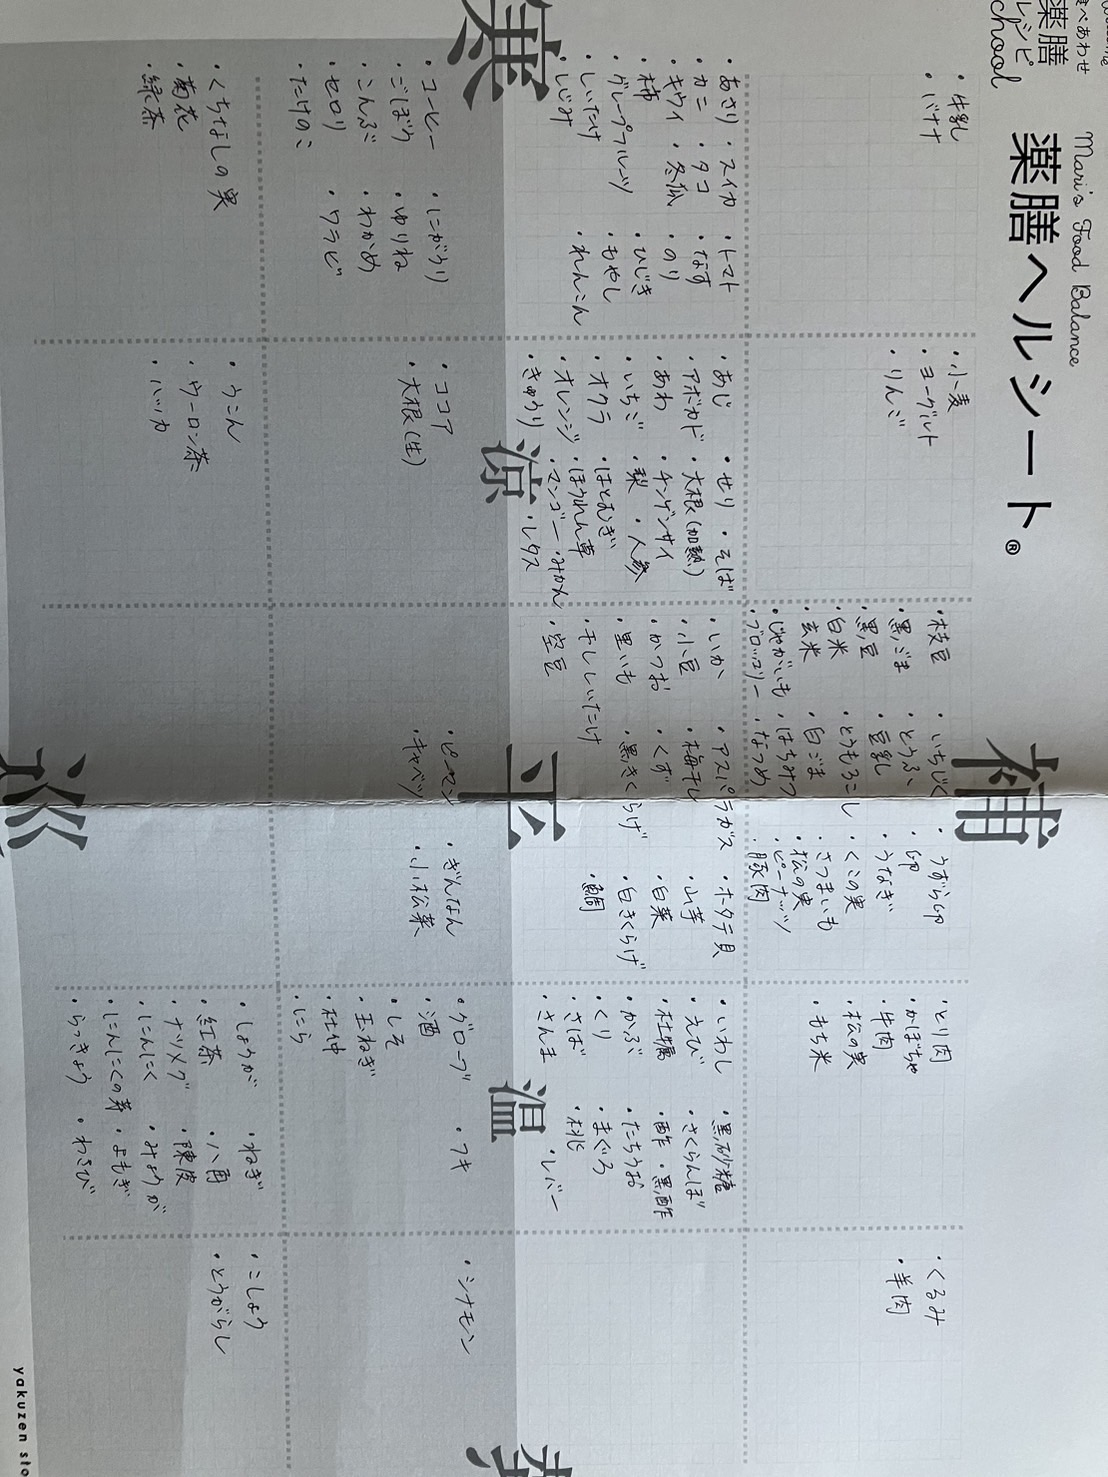 食べあわせ
薬膳
レシピ
School
Mari's Food Balance
薬膳ヘルシート®
補
寒
涼
平
温
・牛乳
・バナナ
・小麦
・ヨーグルト
・りんご
・枝豆 ・いちじく ・うずら卵
・黒ごま ・とうふ ・卵
・黒豆 ・豆乳 ・うなぎ
・白米 ・とうもろこし ・くこの実
・玄米 ・白ごま ・さつまいも
・じゃがいも ・はちみつ ・松の実
・ブロッコリー ・なつめ ・ピーナッツ
・豚肉
・とり肉
・かぼちゃ
・牛肉
・松の実
・もち米
・くるみ
・羊肉
・あさり ・スイカ ・トマト
・カニ ・タコ ・なす
・キウイ ・冬瓜 ・のり
・柿 ・ひじき
・グレープフルーツ ・もやし
・しいたけ ・れんこん
・しじみ
・あじ ・せり ・そば
・アボカド ・大根(加熱)
・あわ ・チンゲンサイ
・いちご ・梨 ・人参
・オクラ ・はとむぎ
・オレンジ ・ほうれん草
・きゅうり ・マンゴー ・みかん
・レタス
・いか ・アスパラガス ・ホタテ貝
・小豆 ・梅干し ・山芋
・かつお ・くず ・白菜
・里いも ・黒きくらげ ・白きくらげ
・干ししいたけ ・鯛
・空豆
・いわし ・黒砂糖
・えび ・さくらんぼ
・牡蠣 ・酢 ・黒酢
・かぶ ・たちうお
・くり ・まぐろ
・さば ・桃
・さんま ・レバー
・コーヒー ・にがうり
・ごぼう ・ゆりね
・こんぶ ・わかめ
・セロリ ・ワラビ
・たけのこ
・ココア
・大根(生)
・ピーマン ・ぎんなん
・キャベツ ・小松菜
・グローブ ・フキ
・酒
・しそ
・玉ねぎ
・杜仲
・にら
・シナモン
・くちなしの実
・菊花
・緑茶
・うこん
・ウーロン茶
・ハッカ
・しょうが ・ねぎ
・紅茶 ・八角
・ナツメグ ・陳皮
・にんにく ・みょうが
・にんにくの芽 ・よもぎ
・らっきょう ・わさび
・こしょう
・とうがらし
yakuzen sto